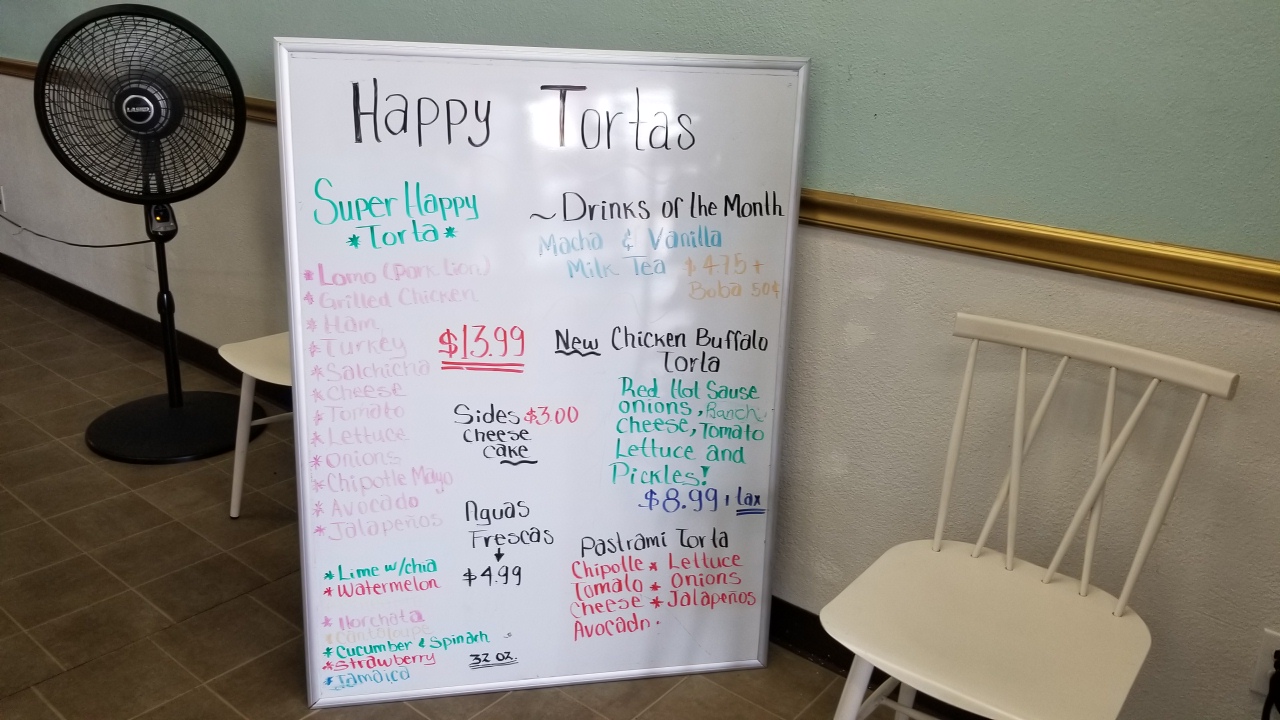 LASKO
Happy Tortas
Super Happy
*Torta*
* Lomo (Pork Lion)
* Grilled Chicken
* Ham
* Turkey
* Salchicha
* Cheese
* Tomato
* Lettuce
* Onions
* Chipotle Mayo
* Avocado
* Jalapeños
$13.99
Sides $3.00
Cheese
cake
Aguas
Frescas
↓
$4.99
* Lime w/chia
* Watermelon
* Horchata
* Cantaloupe
* Cucumber & Spinach
* Strawberry
* Jamaica
32 oz.
~ Drinks of the Month
Macha & Vanilla
Milk Tea $4.75+
Boba 50¢
New Chicken Buffalo
Torta
Red Hot Sause
onions, Ranch,
cheese, Tomato
Lettuce and
Pickles!
$8.99 + tax
Pastrami Torta
Chipotle * Lettuce
Tomato * Onions
Cheese * Jalapeños
Avocado.